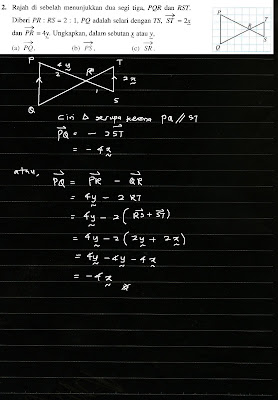 2. Rajah di sebelah menunjukkan dua segi tiga, PQR dan RST.
Diberi PR : RS = 2 : 1, PQ adalah selari dengan TS, →ST = 2x
dan →PR = 4y. Ungkapkan, dalam sebutan x atau y,
(a) →PQ,  (b) →PS,  (c) →SR.
P T
R
Q S
P 4y T
2 R 2x
1
Q S
ciri Δ serupa kerana PQ // ST
→PQ = - 2→ST
= - 4x
atau,
→PQ = →PR - →QR
= 4y - 2 RT
= 4y - 2 ( →RS + →ST )
= 4y - 2 ( 2y + 2x )
= 4y - 4y - 4x
= -4x